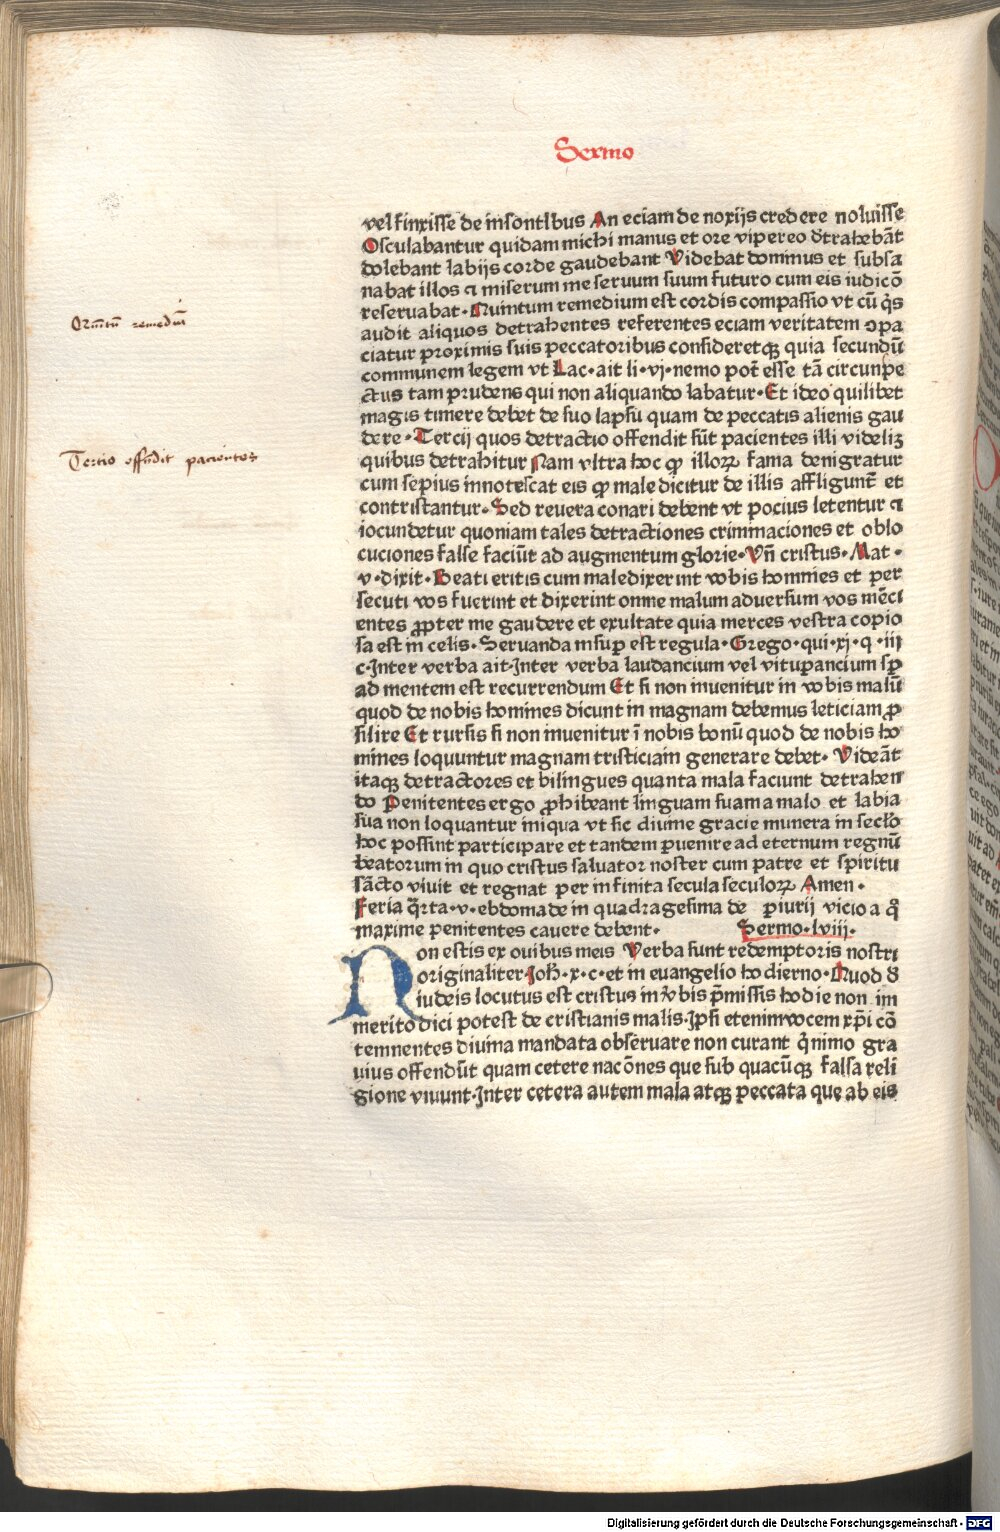 Sermo
vel finxisse de insontibus An eciam de noxijs credere noluisse
Osculabantur quidam michi manus et ore vipereo dꝛtrahebāt
dolebant labijs corde gaudebant Videbat dominus et subsa
nabat illos ⁊ miserum me seruum suum futuro cum eis iudicō
reseruabat· Quintum remedium est cordis compassio vt cū q̄s
audit aliquos detrahentes referentes eciam veritatem ↄpa
ciatur proximis suis peccatoribus consideretqꝫ quia secundū
communem legem vt Lac· ait li· vj· nemo pot̄ esse tā circunspe
Quintū remediū
ctus tam prudens qui non aliquando labatur· Et ideo quilibet
magis timere debet de suo lapsu quam de peccatis alienis gau
dere· Tercij quos detractio offendit sūt pacientes illi videlicꝫ
Tertio offendit pacientes
quibus detrahitur Nam vltra hoc ꝙ illoꝝ fama denigratur
cum sepius innotescat eis ꝙ male dicitur de illis affligunt̄ et
contristantur· Sed reuera conari debent vt pocius letentur ⁊
iocundetur quoniam tales detractiones criminaciones et oblo
cuciones false faciūt ad augmentum glorie· Vn̄ cristus· Mat·
v· dixit· Beati eritis cum maledixerint vobis homines et per
secuti vos fuerint et dixerint omne malum aduersum vos mēci
entes ꝓpter me gaudere et exultate quia merces vestra copio
sa est in celis· Seruanda insuꝑ est regula· Grego· qui· xj· q· iij
c· Inter verba ait· Inter verba laudancium vel vituꝑancium sꝑ
ad mentem est recurrendum Et si non inuenitur in vobis malū
quod de nobis homines dicunt in magnam debemus leticiam ꝓ
silire Et rursus si non inuenitur ī nobis bonū quod de nobis ho
mines loquuntur magnam tristiciam generare debet· Videāt
itaqꝫ detractores et bilingues quanta mala faciunt detrahen
do Penitentes ergo ꝓhibeant linguam suam a malo et labia
sua non loquantur iniqua vt sic diuine gracie munera in seclo
hoc possint participare et tandem ꝑuenire ad eternum regnū
beatorum in quo cristus saluator noster cum patre et spiritu
sācto viuit et regnat per infinita secula seculoꝝ Amen·
Feria q̄rta· v· ebdomade in quadragesima de ꝑiurij vicio a q̊
maxime penitentes cauere debent· Sermo· lviii·
Non estis ex ouibus meis Verba sunt redemptoris nostri
originaliter· Joh̄· x· c· et in euangelio hodierno· Quod ꝺ̄
iudeis locutus est cristus in v̄bis p̄missis hodie non im
merito dici potest de cristianis malis· Ipsi etenim vocem xp̄i cō
temnentes diuina mandata obseruare non curant q̄nimo gra
uius offendūt quam cetere nacōnes que sub quacūqꝫ falsa reli
gione viuunt· Inter cetera autem mala atqꝫ peccata que ab eis
Digitalisierung gefördert durch die Deutsche Forschungsgemeinschaft - DFG